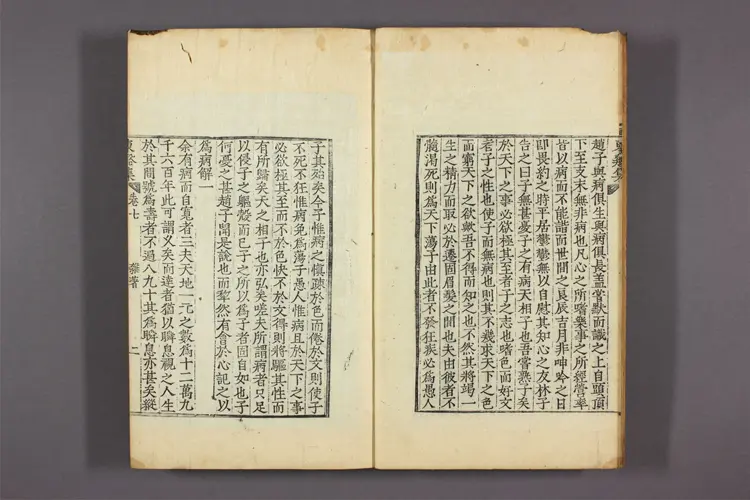 趙子與病俱生與病俱長盖嘗默而識之上自頭頂
下至支末無非病也凡心之所嗜樂事之所經營率
皆以病而不能諧而世間之良辰吉月非呻吟之日
卽畏約之時平居鬱鬱無以自慰其知心之友林子
告之曰子無甚憂子之有病天相子也吾嘗熟子矣
於天下之事必欲極其至者子之志也嗜色而好文
者子之性也使子而無病也則其不幾求天下之色
而窮天下之欲歟吾不得而知之也不然其將竭一
生之精力而取必於遷固眉髮之間也夫由彼者不
髓渴死則爲天下蕩子由此者不發狂疾必爲愚人
子其殆矣今子惟病之愼疎於色而倦於文則使子
不死不狂惟病免爲蕩子愚人惟病且於天下之事
必欲極其至而不於色快不於文得則將驅其性而
有所歸矣天之相子也亦弘矣嗟夫所謂病者只足
以侵子之軀殼而已子之所以爲子者固自如也子
何憂之甚趙子聞是說也而犂然有會於心記之以
爲病解一
余有病而自寬者三夫天地一元之數爲十二萬九
千六百年此可謂久矣而達者猶以瞬息視之人生
於其間號爲壽者不過八九十其爲瞬息亦甚矣縱
東谿集 卷七 雜著 二